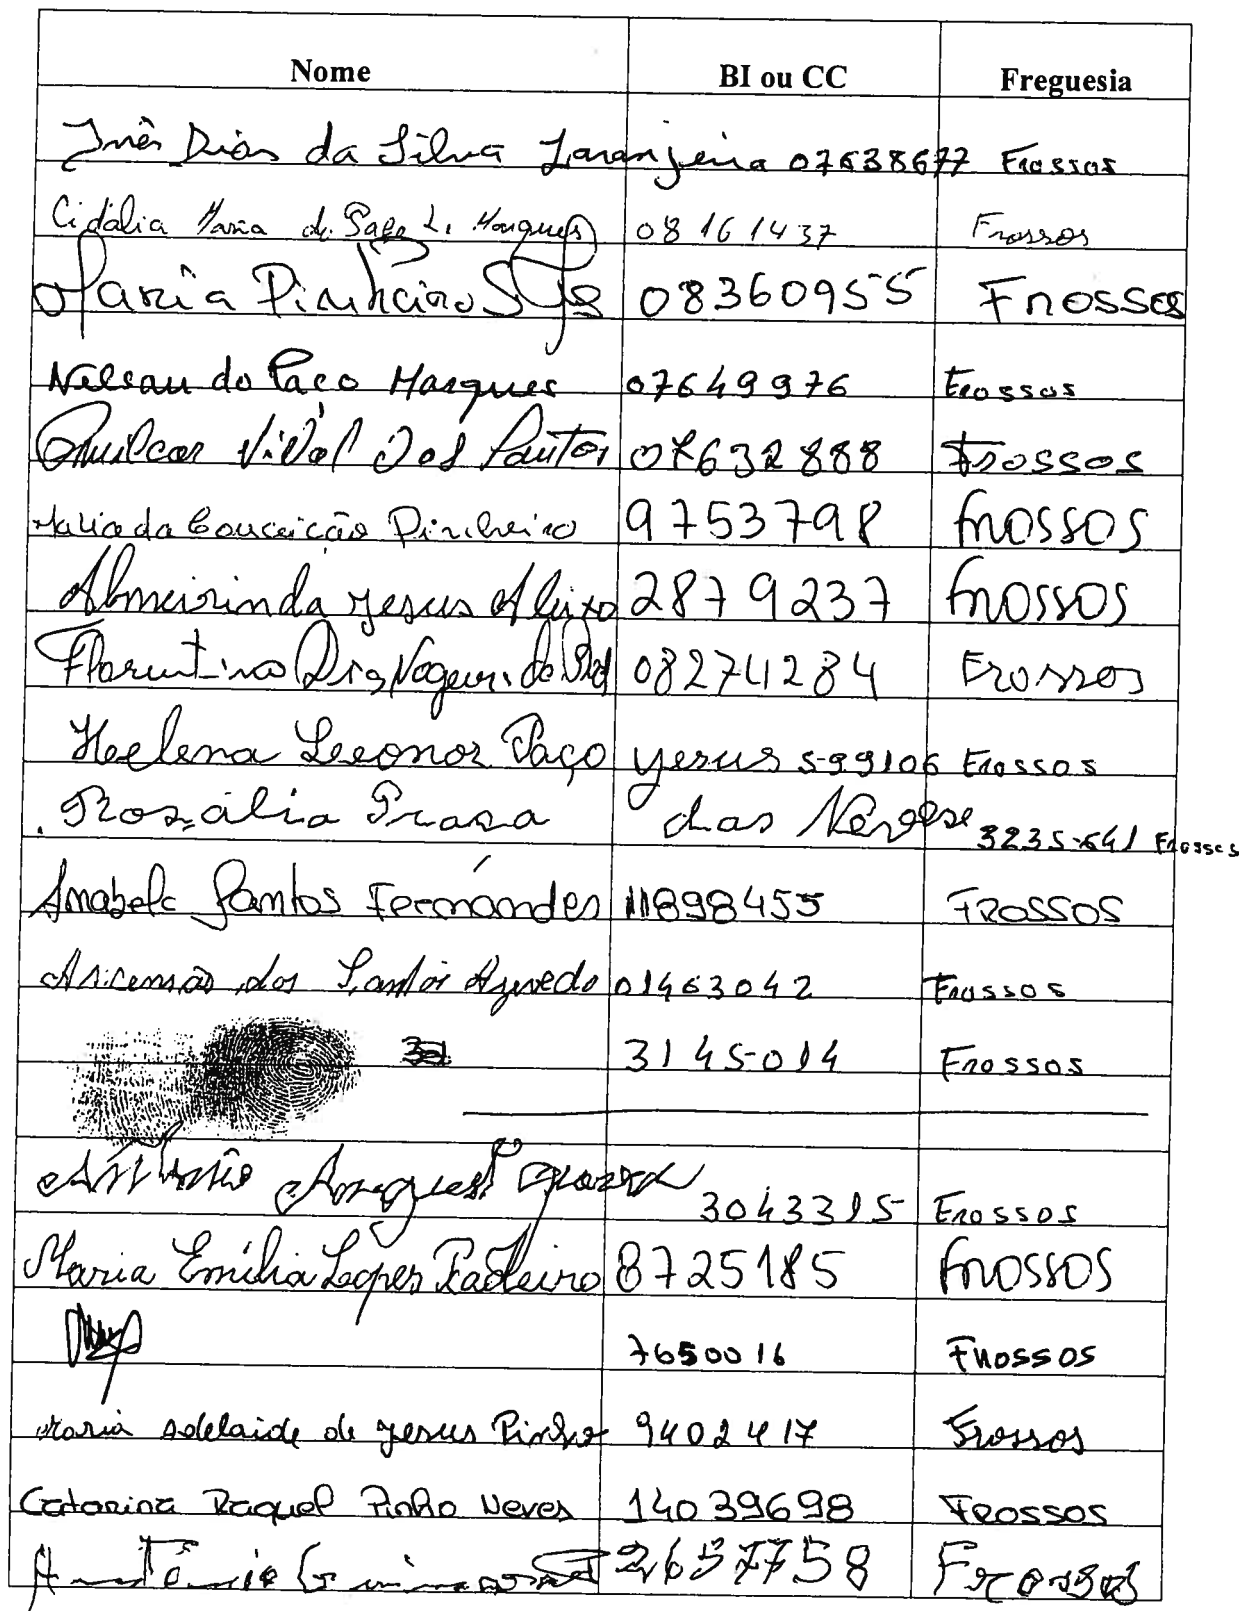 Nome BI ou CC Freguesia
Inês Dias da Silva Laranjeira 07638677 Frossos
Cidália Maria do Paço L. Marques 08161437 Frossos
Maria Pinheiro 08360955 Frossos
Nelson do Paço Marques 07649976 Frossos
Amilcar Vidal Dos Santos 07632888 Frossos
Maria da Conceição Pinheiro 9753798 Frossos
Almeirinda Jesus Aleixo 2879237 Frossos
Florentino Dias Nogueira da 08274284 Frossos
Heelena Leonor Paço Jesus 599106 Frossos
Rozália das 3235641 Frossos
Anabela Santos Fernandes 11898455 FROSSOS
Ascensão dos Santos Azevedo 01463042 Frossos
3145014 Frossos
3043315 Frossos
Maria Emília Lopes Padeiro 8725185 Frossos
7650016 Frossos
Maria Adelaide de Jesus Pinho 9402417 Frossos
Catarina Raquel Pinho Neves 14039698 FROSSOS
António 2657758 Frossos